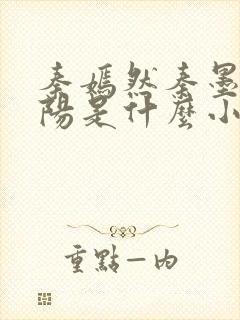 秦嫣然秦墨
陽是什麼小
重點一內